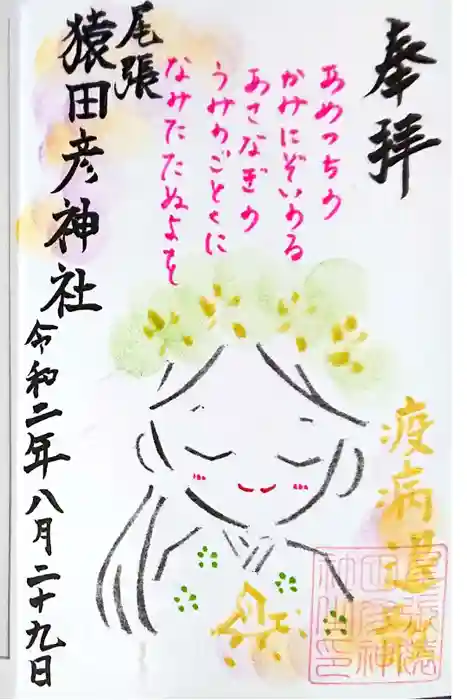 奉拝
疫病退
あめつちの
かみにぞいのる
あさなぎの
うみのごとくに
なみたたぬよを
尾張
猿田彦神社
令和二年八月二十九日